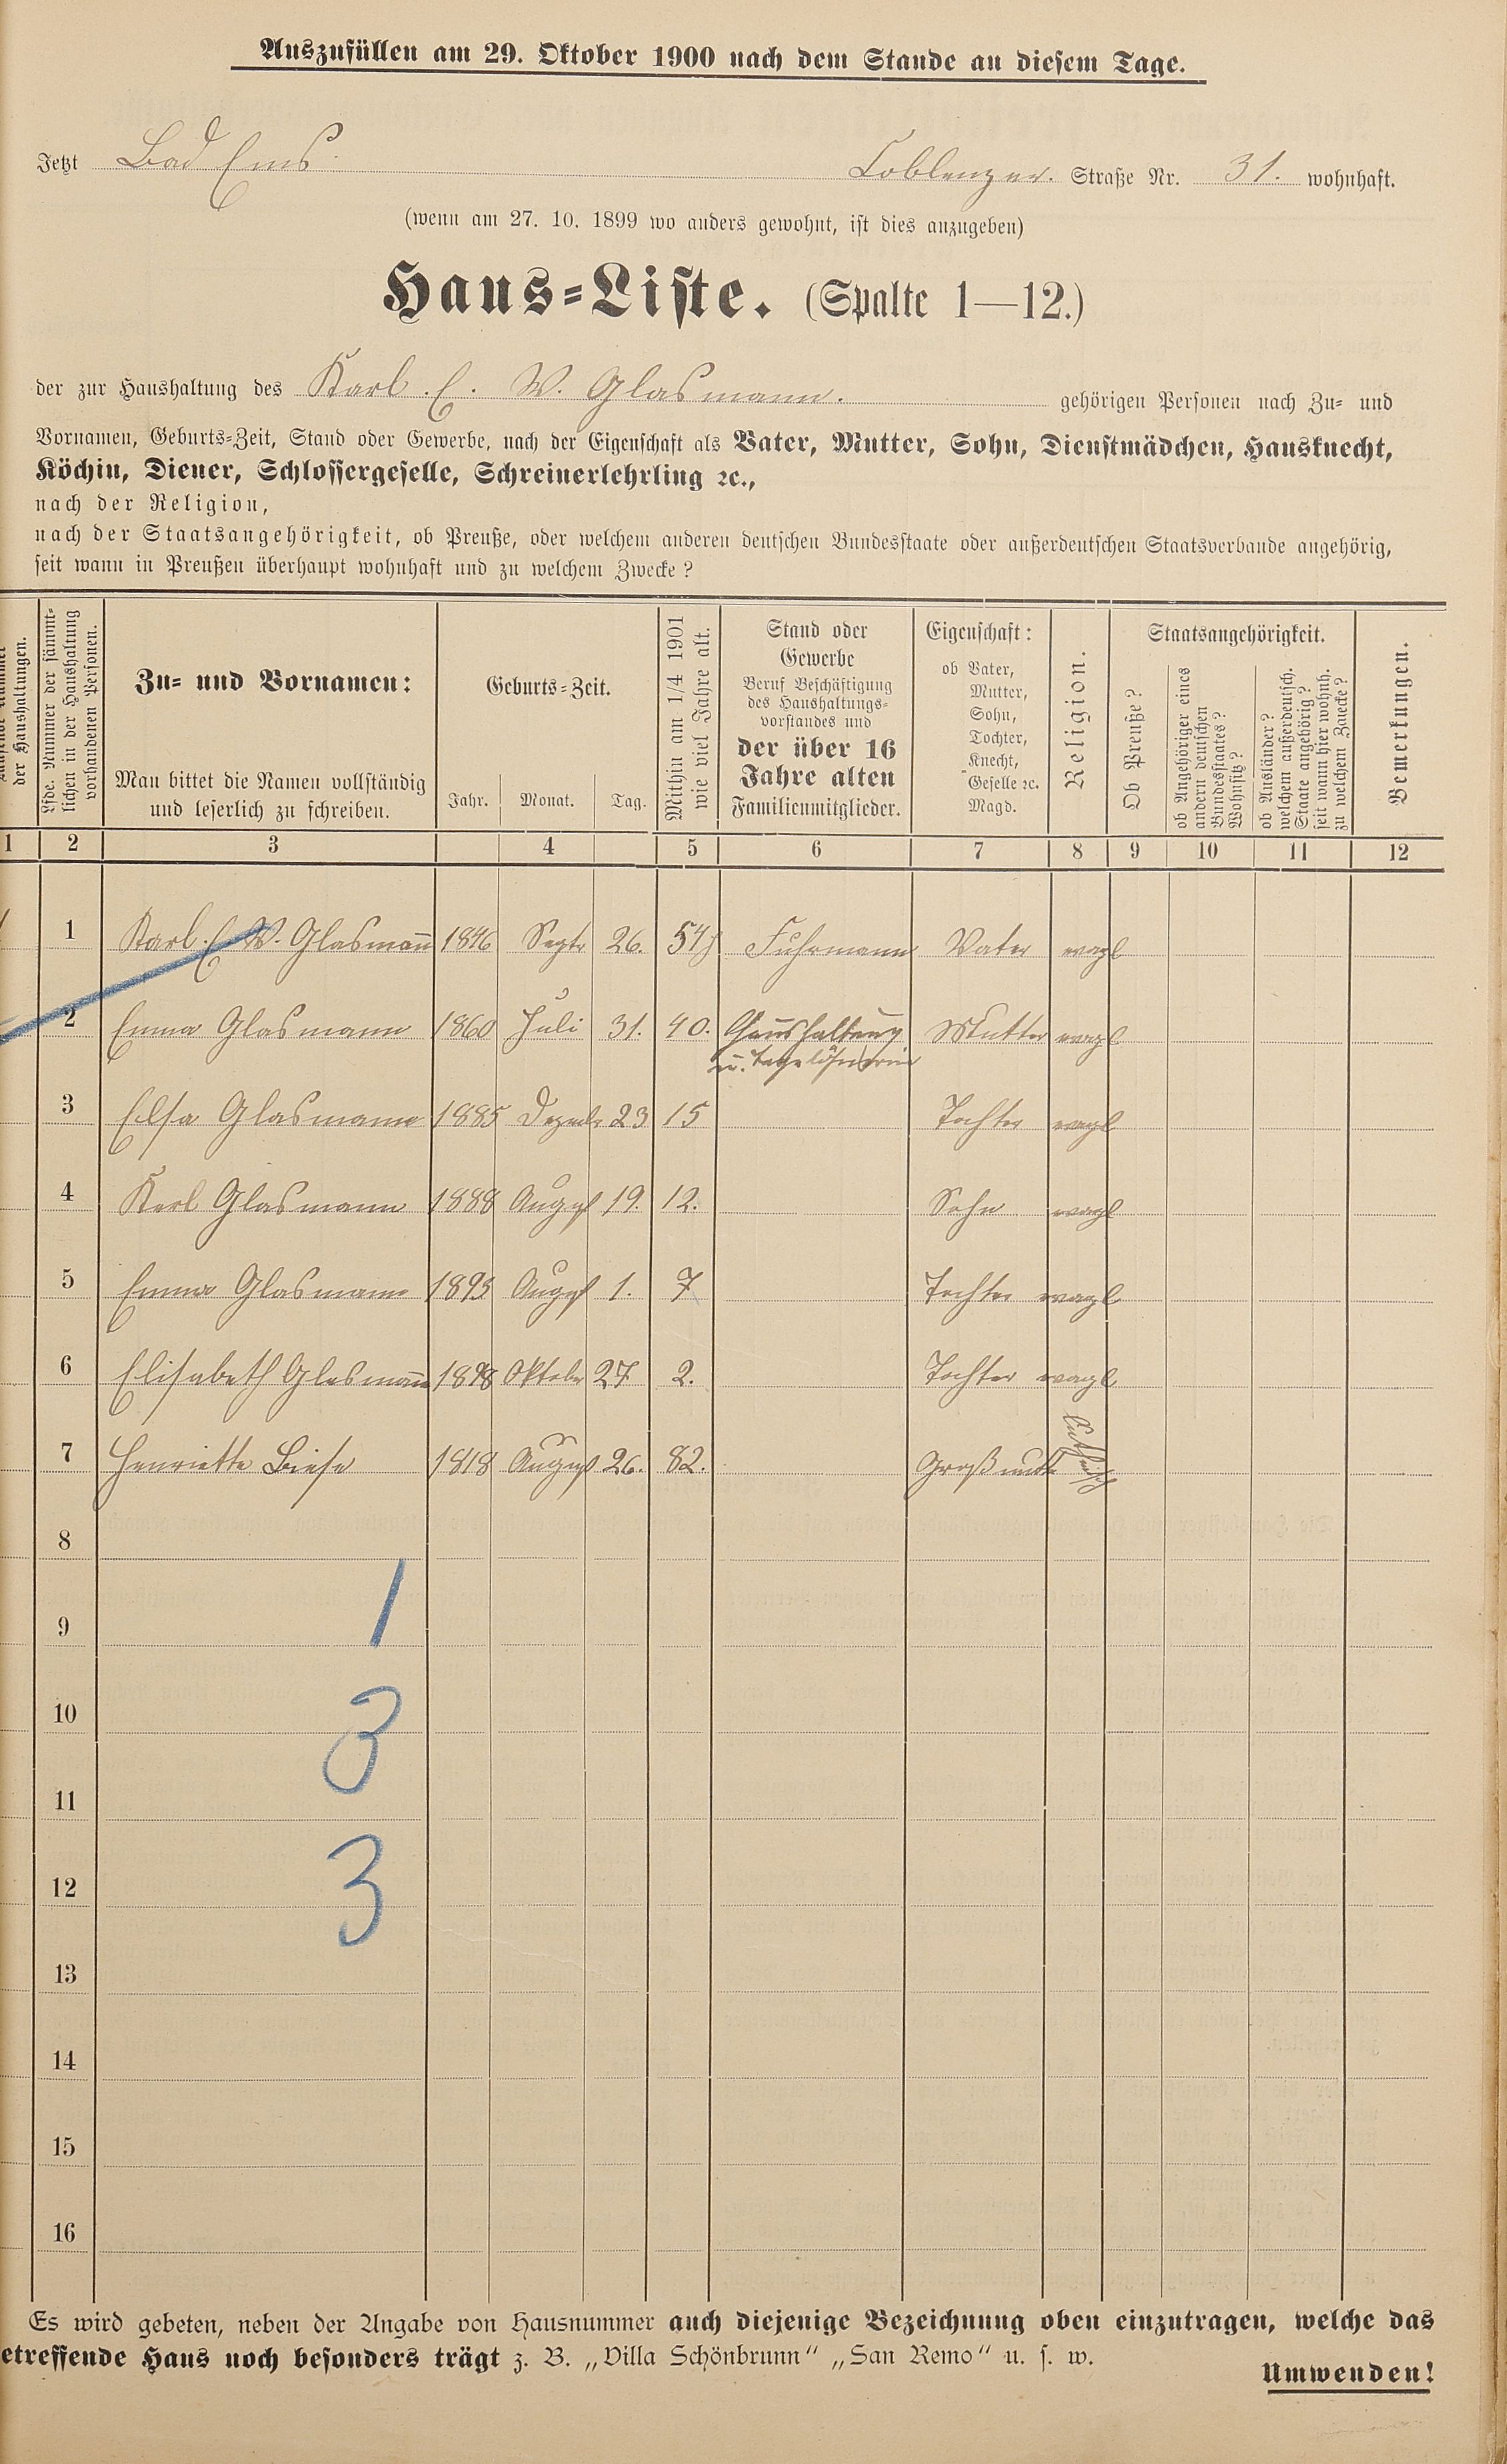 Auszufüllen am 29. Oktober 1900 nach dem Stande an diesem Tage.
Jetzt Bad Ems. Coblenzer. Straße Nr. 31. wohnhaft.
(wenn am 27. 10. 1899 wo anders gewohnt, ist dies anzugeben)
Haus-Liste. (Spalte 1—12.)
der zur Haushaltung des Karl. E. W. Glasmann. gehörigen Personen nach Zu- und
Vornamen, Geburts-Zeit, Stand oder Gewerbe, nach der Eigenschaft als Vater, Mutter, Sohn, Dienstmädchen, Hausknecht,
Köchin, Diener, Schlossergeselle, Schreinerlehrling ꝛc.,
nach der Religion,
nach der Staatsangehörigkeit, ob Preuße, oder welchem anderen deutschen Bundesstaate oder außerdeutschen Staatsverbande angehörig,
seit wann in Preußen überhaupt wohnhaft und zu welchem Zwecke?
der Haushaltungen.
Lfde. Nummer der sämmt-
lichen in der Haushaltung
vorhandenen Personen.
Zu- und Vornamen:
Man bittet die Namen vollständig
und leserlich zu schreiben.
Geburts-Zeit.
Jahr. Monat. Tag.
Mithin am 1/4 1901
wie viel Jahre alt.
Stand oder
Gewerbe
Beruf Beschäftigung
des Haushaltungs-
vorstandes und
der über 16
Jahre alten
Familienmitglieder.
Eigenschaft:
ob Vater,
Mutter,
Sohn,
Tochter,
Knecht,
Geselle ꝛc.
Magd.
Religion.
Staatsangehörigkeit.
Ob Preuße?
ob Angehöriger eines
andern deutschen
Bundesstaates?
Wohnsitz?
ob Ausländer?
welchem außerdeutsch.
Staate angehörig?
seit wann hier wohnh.
zu welchem Zwecke?
Bemerkungen.
1 2 3 4 5 6 7 8 9 10 11 12
1 Karl. E. W. Glasmann 1846 Septr 26. 54 Fuhrmann Vater evagl
2 Emma Glasmann 1860 Juli 31. 40. Haushaltung Mutter evagl
u. Tagelöhnerin
3 Elsa Glasmann 1885 Dezmbr 23 15 Tochter evagl
4 Karl Glasmann 1888 August 19. 12. Sohn evagl
5 Emma Glasmann 1893 August 1. 7 Tochter evagl
6 Elisabeth Glasmann 1898 Oktober 27 2. Tochter evagl
7 Henriette Biese 1818 August 26. 82. Großmutter
8
9 1
10 3
11
12 3
13
14
15
16
Es wird gebeten, neben der Angabe von Hausnummer auch diejenige Bezeichnung oben einzutragen, welche das
etreffende Haus noch besonders trägt z. B. „Villa Schönbrunn“ „San Remo“ u. s. w.
Umwenden!